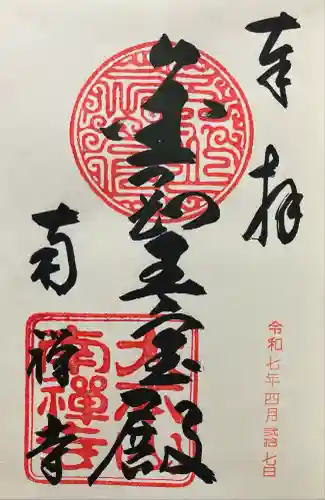 奉拝
金剛王宝殿
南禅寺
南禪寺
令和七年四月弐拾七日